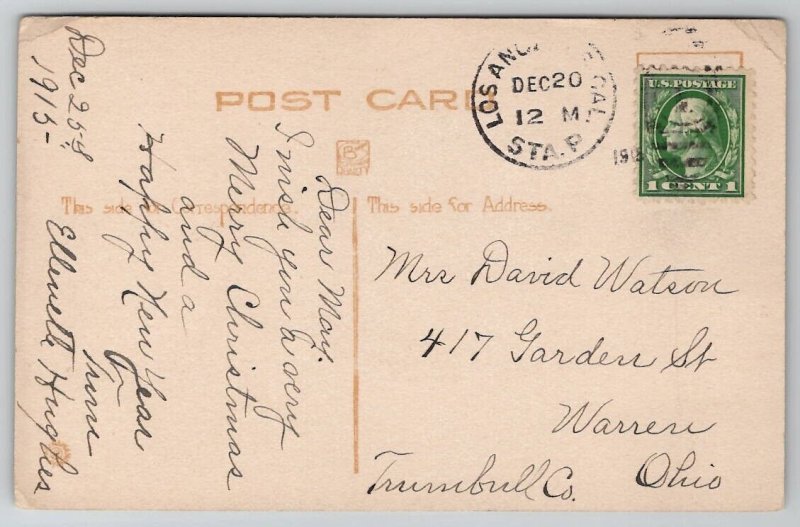 POST CARD
LOS ANG CAL.
DEC 20
12 M
STA. P.
U.S. POSTAGE
1 CENT 1
This side for Correspondence.
This side for Address.
Dear May.
I wish you a very
Merry Christmas
and a
Happy New Year
Dec 25th
1915-
Hughes
Mrs David Watson
417 Garden St
Warren
Trumbull Co. Ohio